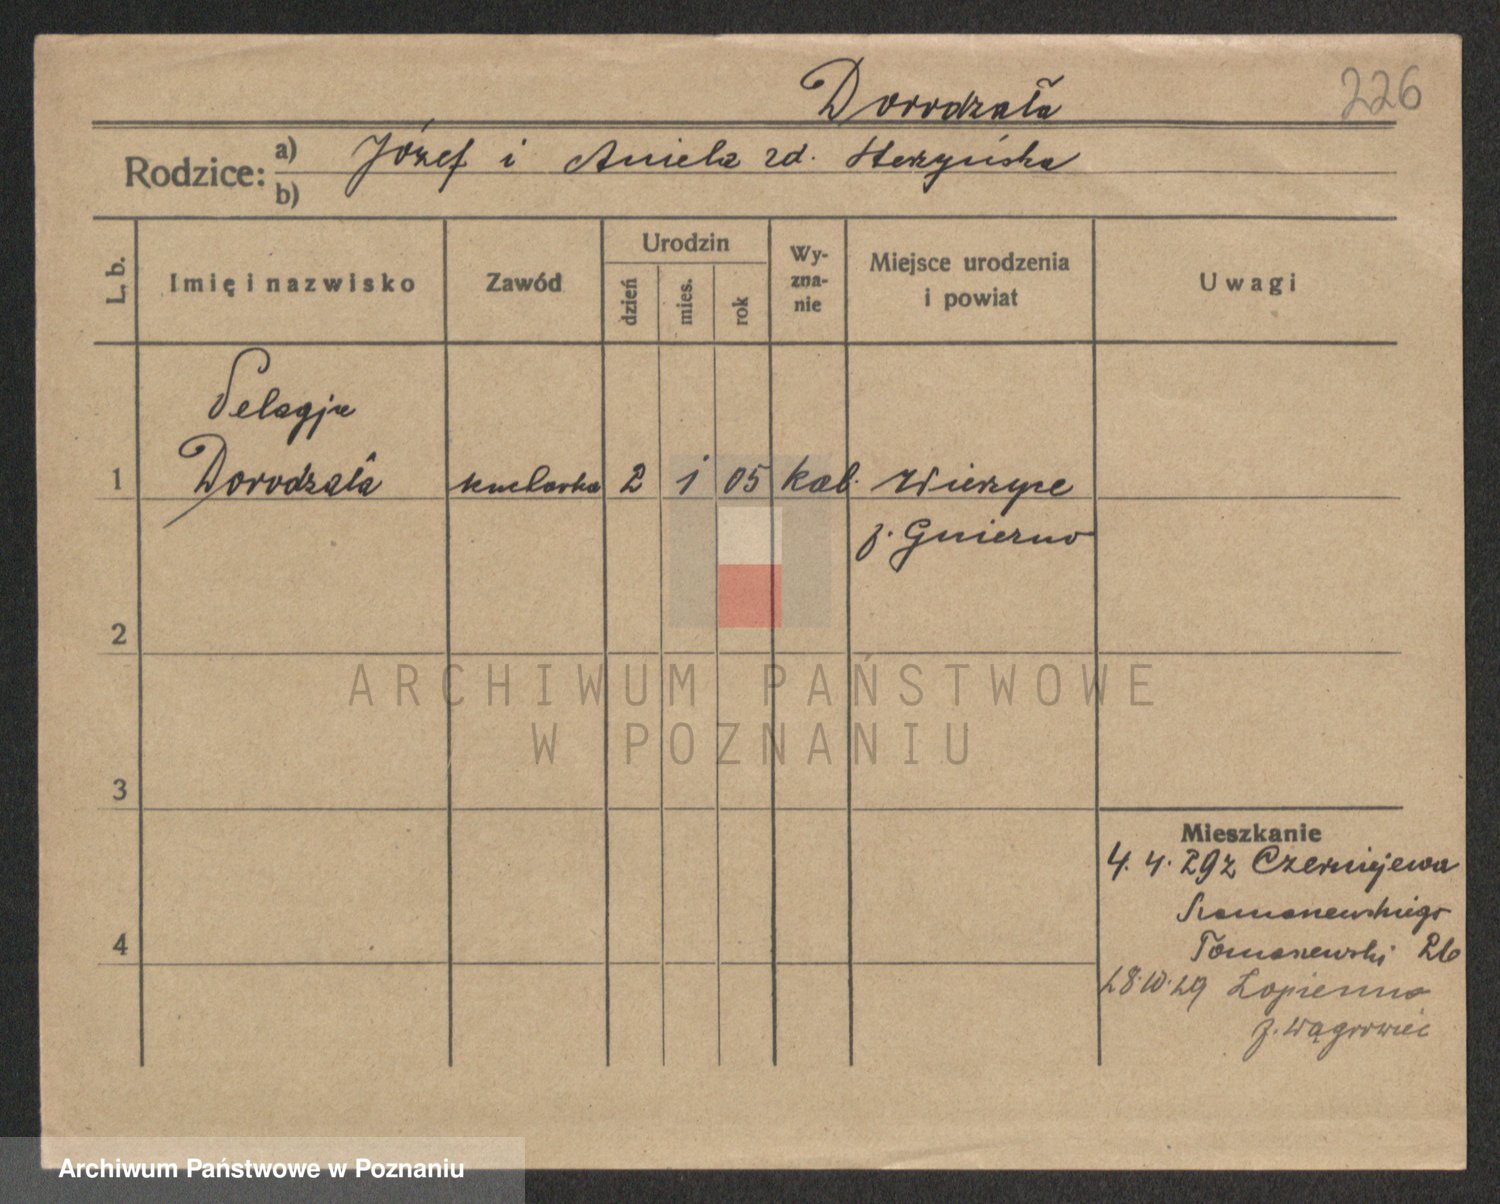 226
Dorodzała
Rodzice: a) Józef i Aniela zd.
b)
L. b.
Imię i nazwisko
Zawód
Urodzin
dzień
mies.
rok
Wy-
zna-
nie
Miejsce urodzenia
i powiat
Uwagi
Pelagja
1 Dorodzała kucharka 2 1 05 kat. Wierzyce
p. Gniezno
2
3
4
ARCHIWUM PAŃSTWOWE
W POZNANIU
Mieszkanie
4. 4. 29 z Czerniejewa
Tomaszewski 26
28.10.29 Łopienno
p. Wągrowiec
Archiwum Państwowe w Poznaniu